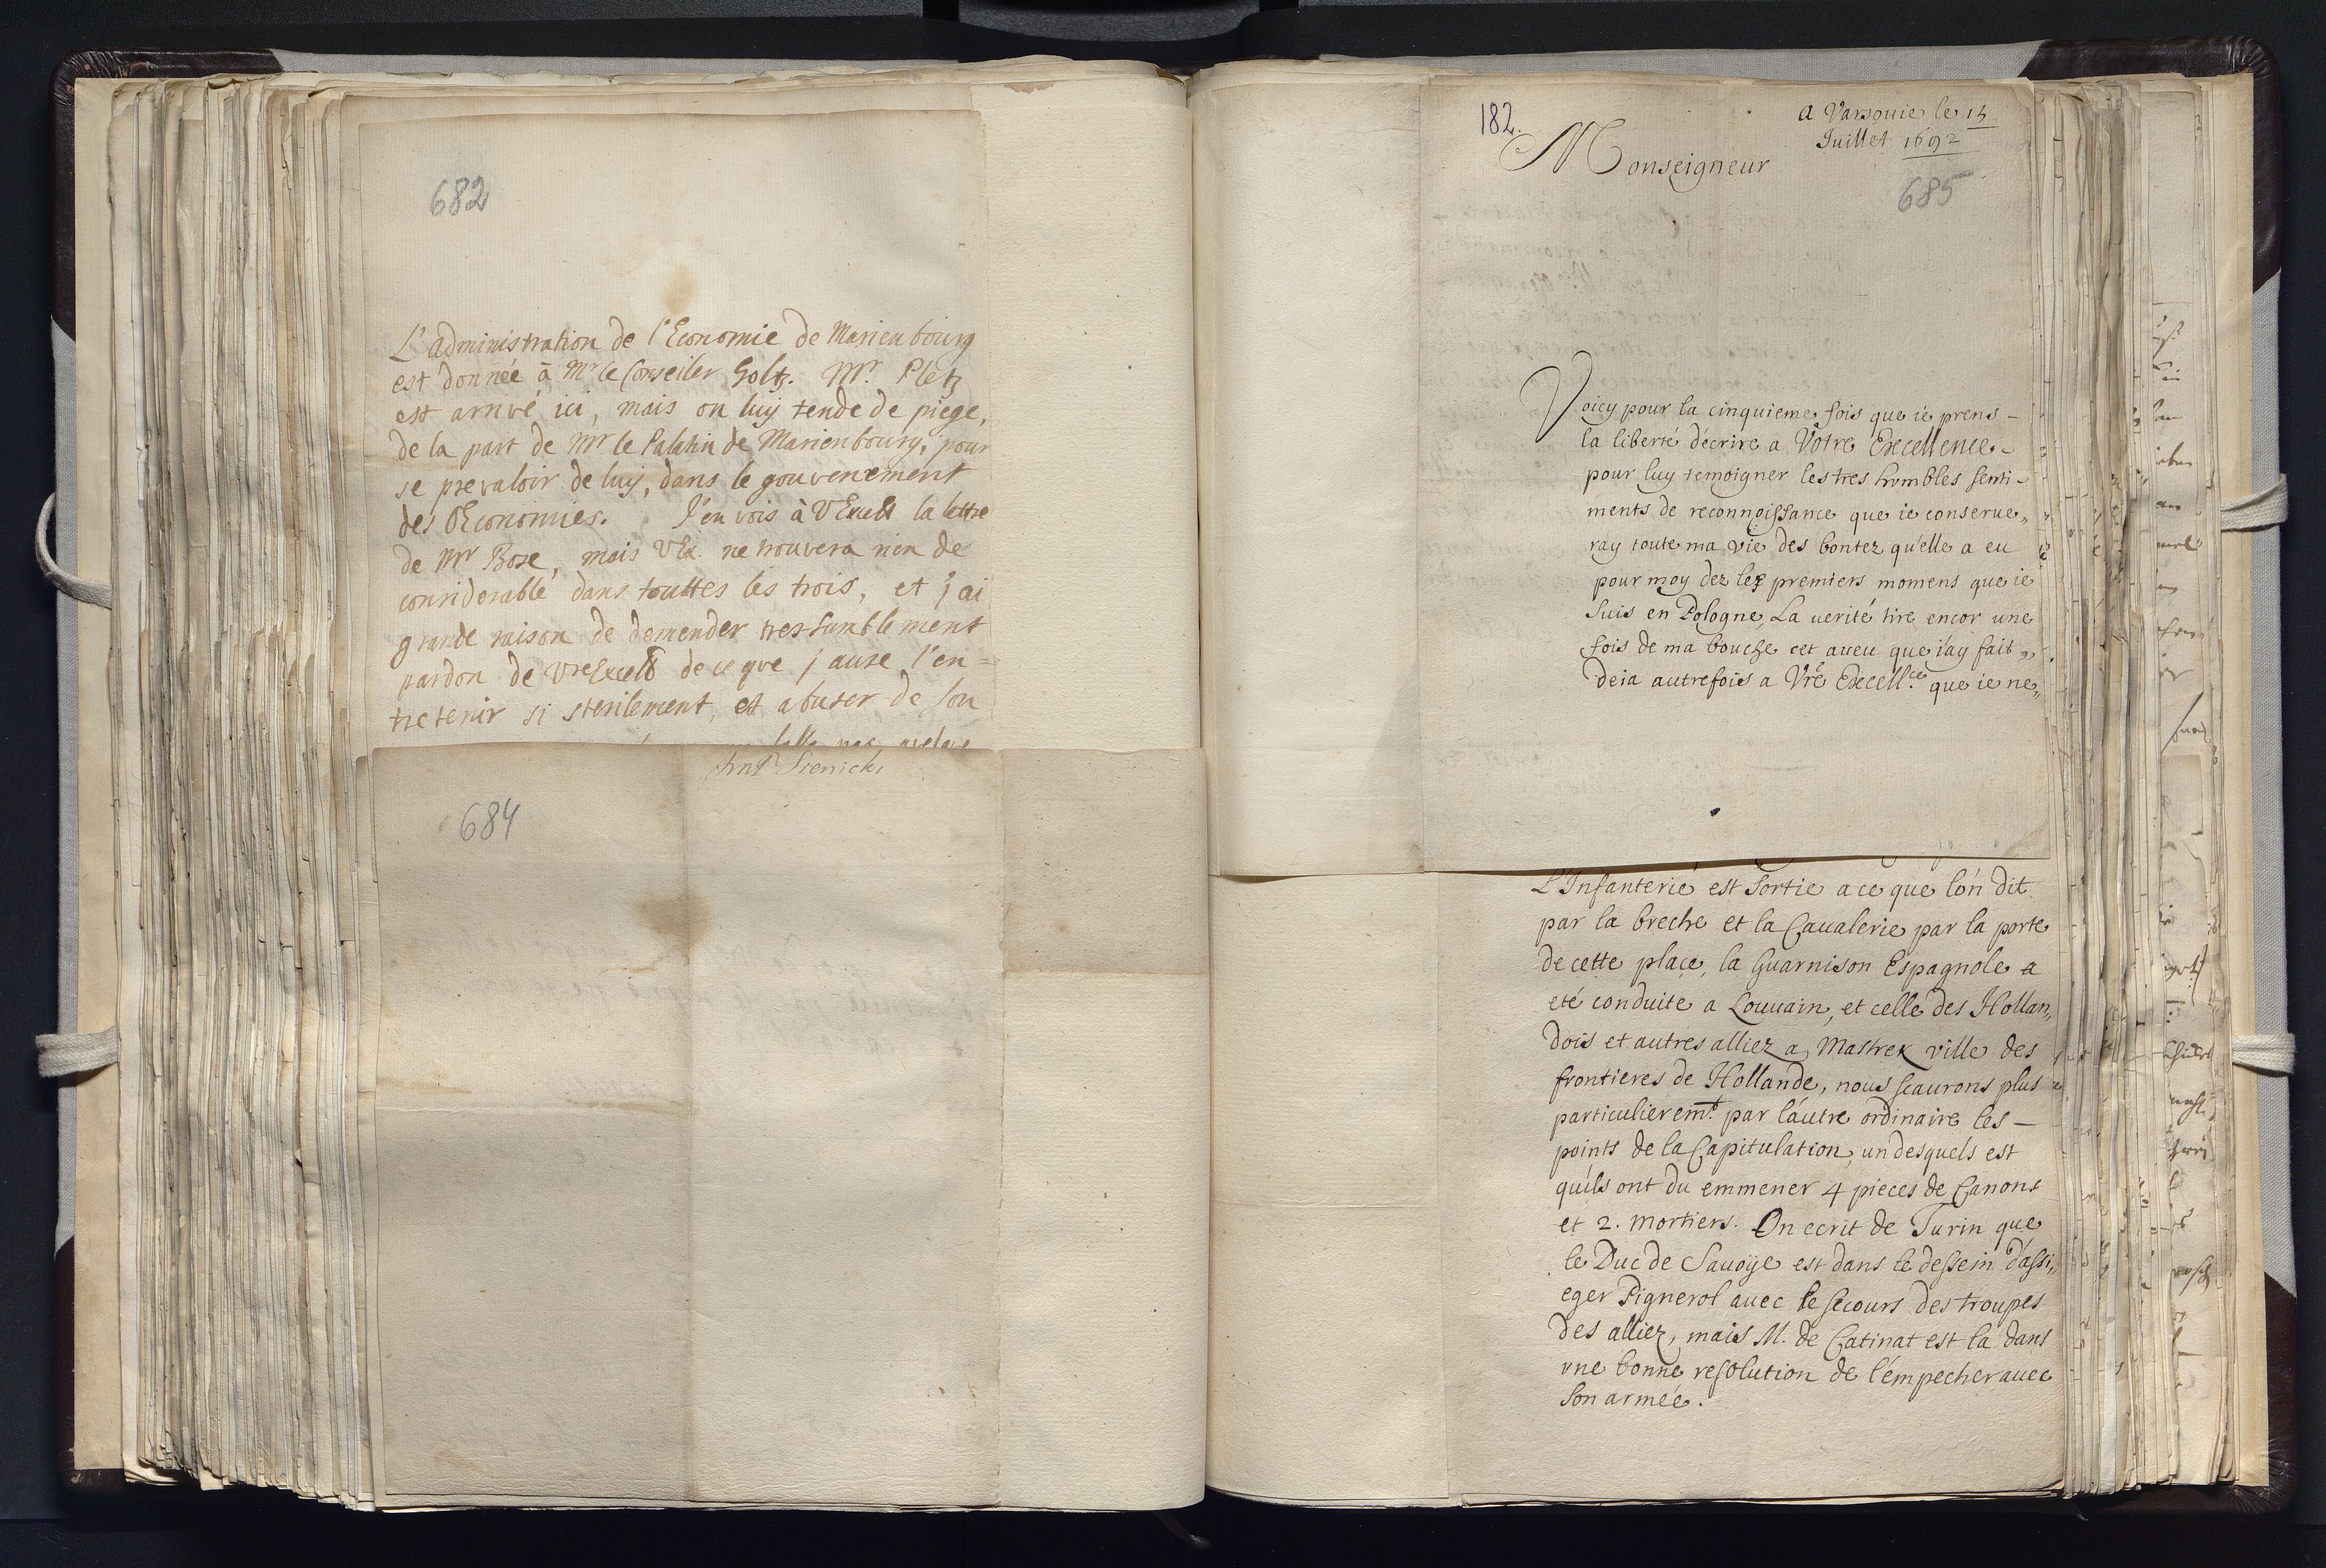 682
L'administration de l'Economie de Marienbourg
est donnée à Mr le Conseiler Goltz. Mr. Pletz
est arrivé ici, mais on luy tende de piege,
de la part de Mr le Palatin de Marienbourg, pour
se prevaloir de luy, dans le gouvernement
des OEconomies. J'envois à VExcell la lettre
de Mr Bose, mais VEx. ne trouvera rien de
considerable dans touttes les trois, et j'ai
grande raison de demender treshumblement
pardon de VreExcell de ce que j'ause l'en=
tretenir si sterilement, et abuser de son
684
182.
a Varsouie le 15
Juillet 1692
Monseigneur
685
Voicy pour la cinquieme fois que ie prens -
la liberté d'écrire a Vôtre Excellence -
pour luy temoigner les tres humbles senti -
ments de reconnoissance que ie conserue„
ray toute ma vie des bontez qu'elle a eu
pour moy dez les premiers momens que ie
suis en Pologne, La uerité tire encor une
fois de ma bouche cet aueu que i'ay fait„
deia autrefois a Vre Excell.ce que ie ne„
L'Infanterie est sortie a ce que l'on dit
par la breche et la Caualerie par la porte
de cette place, la Guarnison Espagnole a
eté conduite a Louuain, et celle des Hollan„
dois et autres alliez a Mastrek ville des
frontieres de Hollande, nous scaurons plus
particulieremt. par l'autre ordinaire les -
points de la Capitulation, un desquels est
qu'ils ont du emmener 4 pieces de Canons
et 2. mortiers. On ecrit de Turin que
le Duc de Sauoye est dans le dessein d'assi„
eger Pignerol auec le secours des troupes
des alliez, mais M. de Catinat est la dans
vne bonne resolution de l'empecher auec
son armée.